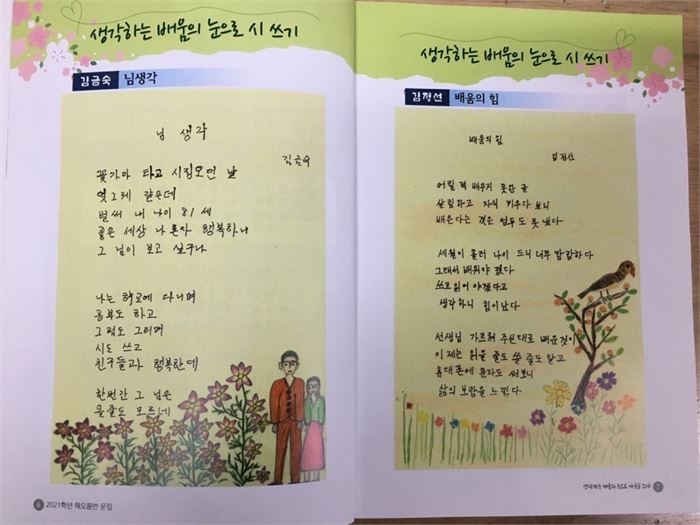 생각하는 배움의 눈으로 시 쓰기
김금숙 님생각
님 생각
김금숙
꽃가마 타고 시집오던 날
엊그제 같은데
벌써 내 나이 81 세
좋은 세상 나 혼자 행복하니
그 님이 보고 싶구나
나는 학교에 다니며
공부도 하고
그림도 그리며
시도 쓰고
친구들과 행복한데
한번간 그 님은
올줄도 모르네
6 2021학년 해오름반 문집
생각하는 배움의 눈으로 시 쓰기
김정선 배움의 힘
배움의 힘
김정선
어릴 적 배우지 못한 글
살림하고 자식 키우다 보니
배운다는 것은 엄두도 못 냈다
세월이 흘러 나이 드니 너무 답답하다
그래서 배워야 겠다
쓰고 읽어 야겠다고
생각하니 힘이 났다
선생님 가르쳐 주신대로 배운것이
이제는 읽을 줄도 쓸 줄도 알고
휴대폰에 문자도 써보니
삶의 보람을 느낀다
생각하는 배움의 눈으로 마음을 그리다 7